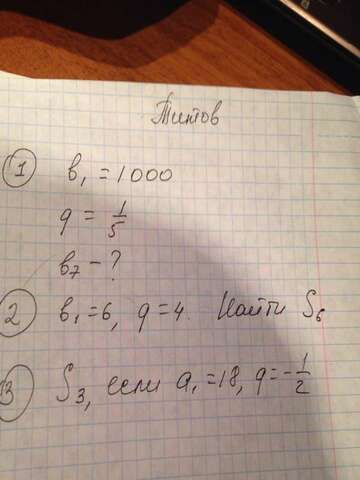 Титов
1 b₁ = 1000
q = 1/5
b₇ - ?
2 b₁ = 6, q = 4. Найти S₆
3 S₃, если a₁ = 18, q = -1/2